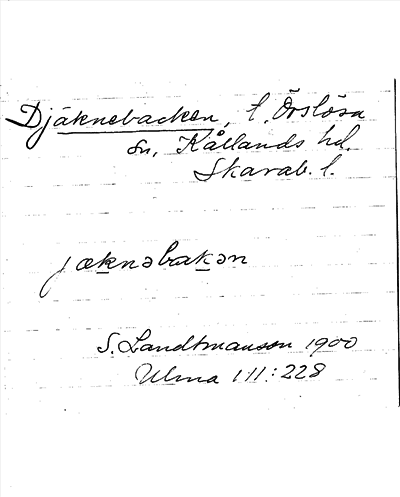 Djäknebacken, l. Örslösa
sn, Kållands hd.
Skarab. l.
jæknəbakən
S. Landtmanson 1900
Ulma 111:228